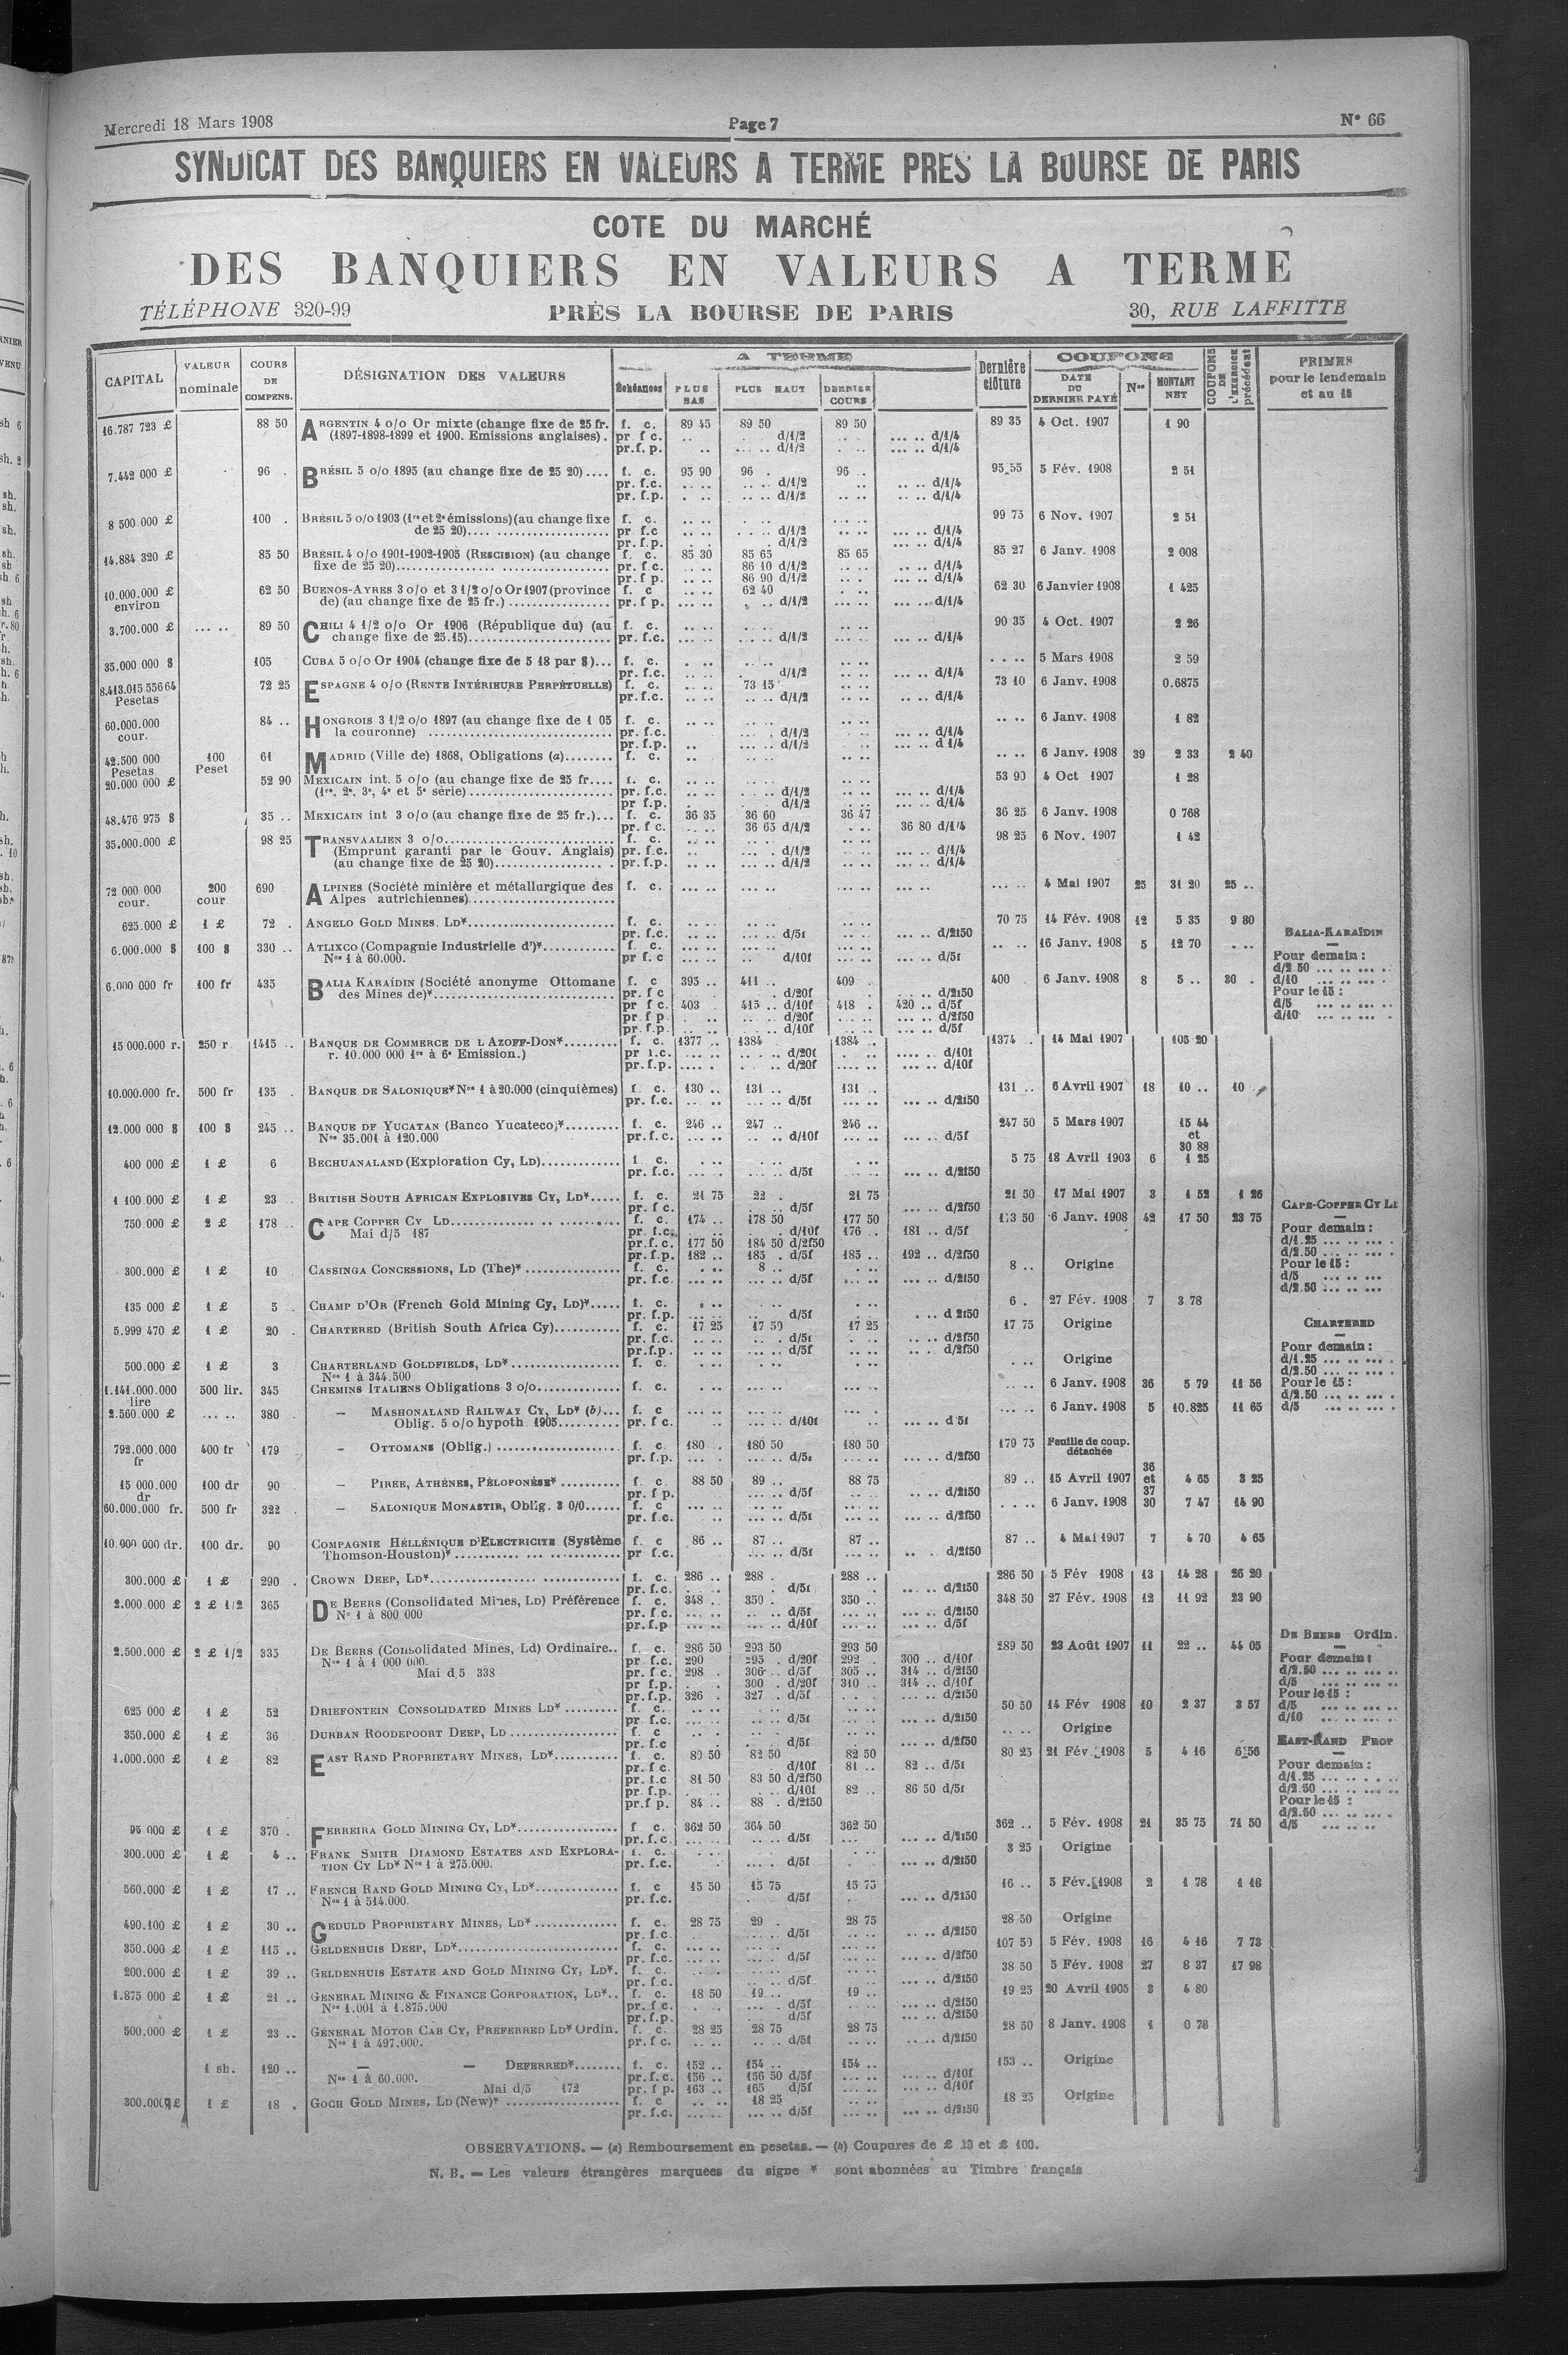 Mercredi 18 Mars 1908 Page 7 N° 66
SYNDICAT DES BANQUIERS EN VALEURS A TERME PRES LA BOURSE DE PARIS
COTE DU MARCHÉ
DES BANQUIERS EN VALEURS A TERME
TÉLÉPHONE 320-99 PRÈS LA BOURSE DE PARIS 30, RUE LAFFITTE
CAPITAL VALEUR nominale COURS DE COMPENS. DÉSIGNATION DES VALEURS A TERME Échéances PLUS BAS PLUS HAUT DERNIER COURS Dernière clôture COUPONS DATE DU DERNIER PAYÉ Nos MONTANT NET COUPONS DE L'EXERCICE précédent PRIMES pour le lendemain et au 15
16.787 723 £ 88 50 ARGENTIN 4 o/o Or mixte (change fixe de 25 fr. f. c. 89 45 89 50 89 50 89 35 4 Oct. 1907 1 90
(1897-1898-1899 et 1900. Emissions anglaises). pr f c. .. d/1/2 ... .. d/1/4
pr.f. p. .. ... .. d/1/2 ... .. d/1/4
7.442 000 £ 96 . BRÉSIL 5 o/o 1895 (au change fixe de 25 20).... f. c. 95 90 96 . 96 .. 95 55 5 Fév. 1908 2 51
pr. f.c. .. .. d/1/2 .. .. d/1/4
pr. f.p. .. .. d/1/2 .. .. d/1/4
8 500 000 £ 100 . BRÉSIL 5 o/o 1903 (1re et 2e émissions)(au change fixe f. c. 99 75 6 Nov. 1907 2 51
de 25 20).... pr f.c d/1/2 ... .. d/1/4
pr. f.p. d/1/2 ... .. d/1/4
14.884 320 £ 85 50 BRÉSIL 4 o/o 1901-1902-1905 (RESCISION) (au change f. c. 85 30 85 65 85 65 85 27 6 Janv. 1908 2 008
fixe de 25 20).... pr. f.c. 86 10 d/1/2 ... .. d/1/4
pr. f p. 86 90 d/1/2 ... .. d/1/4
10.000.000 £ environ 62 50 BUENOS-AYRES 3 o/o et 3 1/2 o/o Or 1907 (province f. c 62 40 62 30 6 Janvier 1908 1 425
de) (au change fixe de 25 fr.) .... pr. f p. d/1/2 ... .. d/1/4
3.700.000 £ ... .. 89 50 CHILI 4 1/2 o/o Or 1906 (République du) (au f. c. 90 35 4 Oct. 1907 2 26
change fixe de 25.15).... pr. f.c. d/1/2 ... .. d/1/4
35.000 000 $ 105 CUBA 5 o/o Or 1904 (change fixe de 5 18 par $)... f. c. 5 Mars 1908 2 59
pr. f.c. d/1/2 ... .. d/1/4
8.413.015 556 64 Pesetas 72 25 ESPAGNE 4 o/o (RENTE INTÉRIEURE PERPÉTUELLE) f. c. 73 15 73 10 6 Janv. 1908 0.6875
pr.f.c. d/1/2 .. .. d/1/4
60.000.000 cour. 84 .. HONGROIS 3 1/2 o/o 1897 (au change fixe de 1 05 f. c. 6 Janv. 1908 1 82
la couronne) .... pr. f.c. d/1/2 ... .. d/1/4
pr. f.p. d/1/2 ... .. d 1/4
42.500 000 Pesetas 100 Peset 61 MADRID (Ville de) 1868, Obligations (a).... f. c. 6 Janv. 1908 39 2 33 2 40
20.000 000 £ 52 90 MEXICAIN int. 5 o/o (au change fixe de 25 fr.... f. c. 53 90 4 Oct 1907 1 28
(1re, 2e, 3e, 4e et 5e série) .... pr. f.c. d/1/2 ... .. d/1/4
pr f.p. d/1/2 ... .. d/1/4
48.476 975 $ 35 .. MEXICAIN int 3 o/o (au change fixe de 25 fr.)... f. c. 36 35 36 60 36 47 36 25 6 Janv. 1908 0 768
pr. f c. 36 65 d/1/2 36 80 d/1/4
35.000.000 £ 98 25 TRANSVAALIEN 3 o/o.... f. c. 98 25 6 Nov. 1907 1 42
(Emprunt garanti par le Gouv. Anglais) pr. f.c. d/1/2 ... .. d/1/4
(au change fixe de 25 20).... pr. f.p. d/1/2 ... .. d/1/4
72 000 000 cour. 200 cour 690 ALPINES (Société minière et métallurgique des f. c. 4 Mai 1907 25 31 20 25 ..
Alpes autrichiennes)....
625.000 £ 1 £ 72 . ANGELO GOLD MINES. LD*.... f. c. 70 75 14 Fév. 1908 12 5 35 9 80
pr. f.c. d/5f ... .. d/2f50
6.000.000 $ 100 $ 330 .. ATLIXCO (Compagnie Industrielle d')*.... f. c. 16 Janv. 1908 5 12 70
Nos 1 à 60.000. pr f.c d/10f ... .. d/5f
6.000 000 fr 100 fr 435 BALIA KARAÏDIN (Société anonyme Ottomane f. c 395 .. 411 .. 409 400 6 Janv. 1908 8 5 .. 30 .
des Mines de)*.... pr. f c d/20f ... .. d/2f50
pr f c. 403 415 .. d/10f 418 . 420 .. d/5f
pr. f p. d/20f ... .. d/2f50
pr. f.p. d/10f ... .. d/5f
BALIA-KARAÏDIN
Pour demain :
d/2.50 ... .. ... .
d/10 ... .. ... .
Pour le 15 :
d/5 ... .. ... ..
d/10 ... .. ... .
15 000.000 r. 250 r 1415 .. BANQUE DE COMMERCE DE L AZOFF-DON*.... f. c. 1377 .. 1384 1384 .. 1374 .. 14 Mai 1907 105 20
r. 10.000 000 1re à 6e Emission.) pr f.c. d/20f .... .. d/10f
pr. f.p. d/20f .... .. d/10f
10.000.000 fr. 500 fr 135 . BANQUE DE SALONIQUE* Nos 1 à 20.000 (cinquièmes) f. c. 130 .. 131 .. 131 .. 131 .. 6 Avril 1907 18 10 .. 10
pr. f.c. d/5f ... .. d/2f50
12.000 000 $ 100 $ 245 .. BANQUE DE YUCATAN (Banco Yucateco)*.... f. c. 246 .. 247 .. 246 .. 247 50 5 Mars 1907 15 44 et 30 88
Nos 35.001 à 120.000 pr. f.c. d/10f ... .. d/5f
400 000 £ 1 £ 6 BECHUANALAND (Exploration Cy, LD).... f. c. 5 75 18 Avril 1903 6 1 25
pr. f.c. d/5f ... .. d/2f50
1 100.000 £ 1 £ 23 .. BRITISH SOUTH AFRICAN EXPLOSIVES CY, LD*..... f. c. 21 75 22 . 21 75 21 50 17 Mai 1907 3 1 52 1 26
pr. f c. d/5f ... .. d/2f50
750.000 £ 2 £ 178 .. CAPE COPPER CY LD.... f. c. 174 .. 178 50 177 50 6 Janv. 1908 42 17 50 23 75
Mai d/5 187 pr. f.c. d/10f 176 .. 181 .. d/5f
pr. f. c. 177 50 184 50 d/2f50
pr. f.p. 182 .. 185 . d/5f 185 .. 192 .. d/2f50
CAPE-COPPER CY
Pour demain :
d/1.25 ... .. ... .
d/2.50 ... .. ... .
Pour le 15 :
d/5 ... .. ...
d/2.50 ... .. ...
300.000 £ 1 £ 10 CASSINGA CONCESSIONS, LD (The)*.... f. c. 8 .. 8 .. Origine
pr. f.c. d/5f ... .. d/2f50
135 000 £ 1 £ 5 . CHAMP D'OR (French Gold Mining Cy, LD)*..... f. c. 6 . 27 Fév. 1908 7 3 78
pr. f.p. d/5f .. d 2f50
5.999 470 £ 1 £ 20 . CHARTERED (British South Africa Cy).... f. c. 17 25 17 50 17 25 17 75 Origine
pr. f.c. d/5f ... .. d/2f50
pr.f.p. d/5f ... .. d/2f50
CHARTERED
Pour demain :
d/1.25 ... .. ... .
d/2.50 ... .. ... .
Pour le 15 :
d/2.50 ... .. ... .
d/5 ... .. ... .
500.000 £ 1 £ 3 CHARTERLAND GOLDFIELDS, LD*.... f. c. Origine
Nos 1 à 344.500
1.141.000.000 lire 500 lir. 345 CHEMINS ITALIENS Obligations 3 o/o.... f. c. 6 Janv. 1908 36 5 79 11 56
2.560.000 £ ... .. 380 — MASHONALAND RAILWAY CY, LD* (b)... f. c 6 Janv. 1908 5 10.825 11 65
Oblig. 5 o/o hypoth 1905.... pr. f c. d/10f ... .. d 5f
792.000.000 fr 400 fr 179 — OTTOMANS (Oblig.) .... f. c 180 . 180 50 180 50 179 75 Feuille de coup. détachée
pr. f.p. d/5f ... .. d/2f50
15 000.000 dr 100 dr 90 — PIREE, ATHÈNES, PÉLOPONÈSE*.... f. c. 88 50 89 .. 88 75 89 .. 15 Avril 1907 36 et 37 4 65 3 25
pr. f p. d/5f ... .. d/2f50
60.000.000 fr. 500 fr 322 — SALONIQUE MONASTIR, Oblig. 3 0/0...... f. c 6 Janv. 1908 30 7 47 14 90
pr. f.c. d/5f ... .. d/2f50
10.000 000 dr. 100 dr. 90 COMPAGNIE HÉLLÉNIQUE D'ELECTRICITE (Système f. c 86 .. 87 .. 87 .. 87 .. 4 Mai 1907 7 4 70 4 65
Thomson-Houston)*.... pr f.c. d/5f .. . d/2f50
300.000 £ 1 £ 290 . CROWN DEEP, LD*.... f. c. 286 .. 288 . 288 .. 286 50 5 Fév 1908 13 14 28 26 20
pr. f.c. d/5f ... .. d/2f50
2.000.000 £ 2 £ 1/2 365 DE BEERS (Consolidated Mines, LD) Préférence f. c. 348 .. 350 . 350 .. 348 50 27 Fév. 1908 12 11 92 23 90
N° 1 à 800 000 pr. f.c. d/5f ... .. d/2f50
pr. f.p d/10f ... .. d/5f
2.500.000 £ 2 £ 1/2 335 DE BEERS (Consolidated Mines, Ld) Ordinaire.. f. c. 286 50 293 50 293 50 289 50 23 Août 1907 11 22 .. 44 05
Nos 1 à 1 000 000. pr. f.c. 290 295 . d/20f 292 .. 300 .. d/10f
Mai d/5 338 pr. f c. 298 . 306 .. d/5f 305 .. 314 .. d/2f50
pr f.p. 300 . d/20f 310 .. 314 .. d/10f
pr. f.p. 326 . 327 .. d/5f ... .. d/2f50
DE BEERS Ordin.
Pour demain :
d/2.50 ... .. ... ..
d/5 ... .. ... ..
Pour le 15 :
d/5 ... .. ... .
d/10 ... .. ... .
625 000 £ 1 £ 52 DRIEFONTEIN CONSOLIDATED MINES LD*.... f. c. 50 50 14 Fév 1908 10 2 37 3 57
pr f.c. d/5f ... .. d/2f50
350.000 £ 1 £ 36 DURBAN ROODEPOORT DEEP, LD.... f. c Origine
pr. f.c d/5f ... .. d/2f50
1.000.000 £ 1 £ 82 EAST RAND PROPRIETARY MINES, LD*.... f. c. 80 50 82 50 82 50 80 25 21 Fév. 1908 5 4 16 6 56
pr. f c. d/10f 81 .. 82 .. d/5f
pr. f.c 81 50 83 50 d/2f50
pr. f.p. d/10f 82 .. 86 50 d/5f
pr.f p. 84 .. 88 . d/2f50
EAST-RAND PROP
Pour demain :
d/1.25 ... .. . . .
d/2.50 ... .. ... .
Pour le 15 :
d/2.50 ... .. ... .
d/5 ... .. ..
95 000 £ 1 £ 370 . FERREIRA GOLD MINING CY, LD*.... f c. 362 50 364 50 362 50 362 .. 5 Fév. 1908 21 35 75 71 50
pr. f.c. d/5f ... .. d/2f50
300.000 £ 1 £ 4 .. FRANK SMITH DIAMOND ESTATES AND EXPLORA- f. c. 3 25 Origine
TION CY LD* Nos 1 à 275.000. pr. f.c. d/5f ... .. d/2f50
560.000 £ 1 £ 17 .. FRENCH RAND GOLD MINING CY, LD*.... f. c 15 50 15 75 15 75 16 .. 5 Fév. 1908 2 1 78 1 16
Nos 1 à 514.000. pr. f.c. d/5f ... .. d/2f50
490.100 £ 1 £ 30 .. GEDULD PROPRIETARY MINES, LD*.... f. c. 28 75 29 . 28 75 28 50 Origine
pr. f.c d/5f ... .. d/2f50
350.000 £ 1 £ 115 .. GELDENHUIS DEEP, LD*.... f. c. 107 50 5 Fév. 1908 16 4 16 7 73
pr. f.c. d/5f ... .. d/2f50
200.000 £ 1 £ 39 .. GELDENHUIS ESTATE AND GOLD MINING CY, LD*. f. c. 38 50 5 Fév. 1908 27 8 37 17 98
pr. f.c. d/5f ... .. d/2f50
1.875 000 £ 1 £ 21 .. GENERAL MINING & FINANCE CORPORATION, LD*.. f. c. 18 50 19 .. 19 .. 19 25 20 Avril 1905 3 4 80
Nos 1.001 à 1.875.000 pr. f c. d/5f ... .. d/2f50
pr. f.p. d/5f ... .. d/2f50
500.000 £ 1 £ 23 .. GÉNÉRAL MOTOR CAB CY, PREFERRED LD* Ordin. f. c. 28 25 28 75 28 75 28 50 8 Janv. 1908 1 0 78
Nos 1 à 497.000. pr. f c. d/5f ... .. d/2f50
1 sh. 120 .. — — DEFERRED*.... f. c. 152 .. 154 .. 154 .. 153 .. Origine
Nos 1 à 60.000. pr. f.c. 156 .. 156 50 d/5f ... .. d/10f
Mai d/5 172 pr. f p. 163 .. 165 d/5f ... .. d/10f
300.000 £ 1 £ 18 . GOCH GOLD MINES, LD (New)*.... f. c 18 25 18 25 Origine
pr. f.c. d/5f ... .. d/2f50
OBSERVATIONS. — (a) Remboursement en pesetas. — (b) Coupures de £ 20 et £ 100.
N. B. — Les valeurs étrangères marquées du signe * sont abonnées au Timbre français